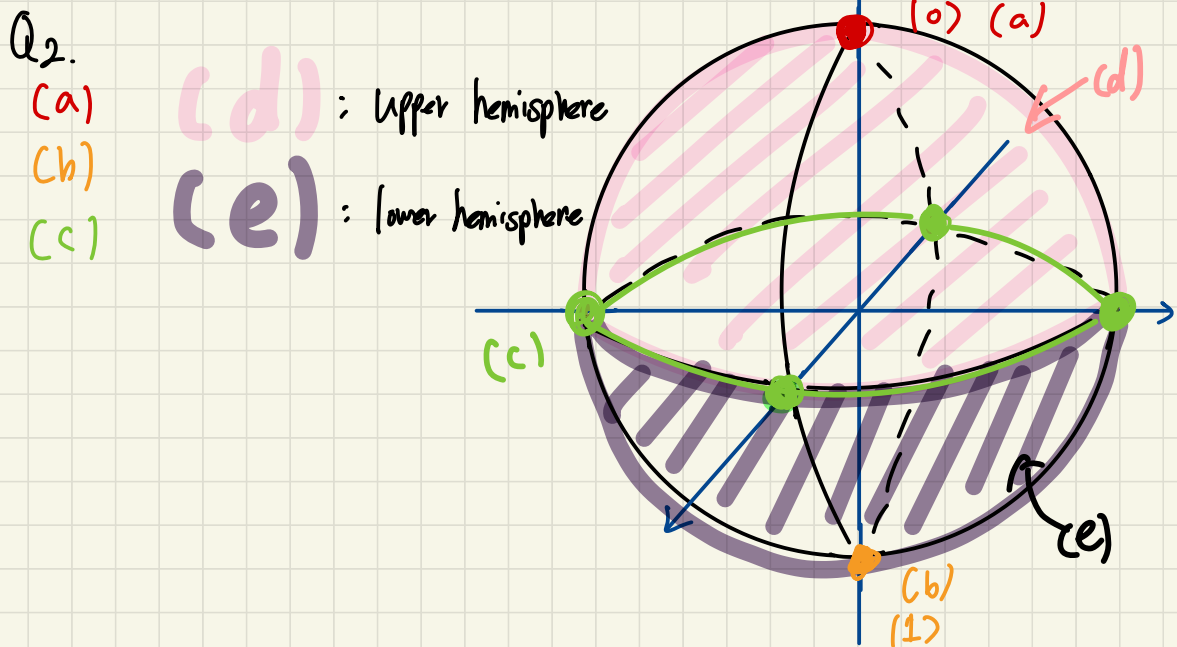 Q2.
(a)
(b)
(c)
(d) : Upper hemisphere
(e) : lower hemisphere
(0) (a)
(d)
(c)
(e)
(b)
(1)